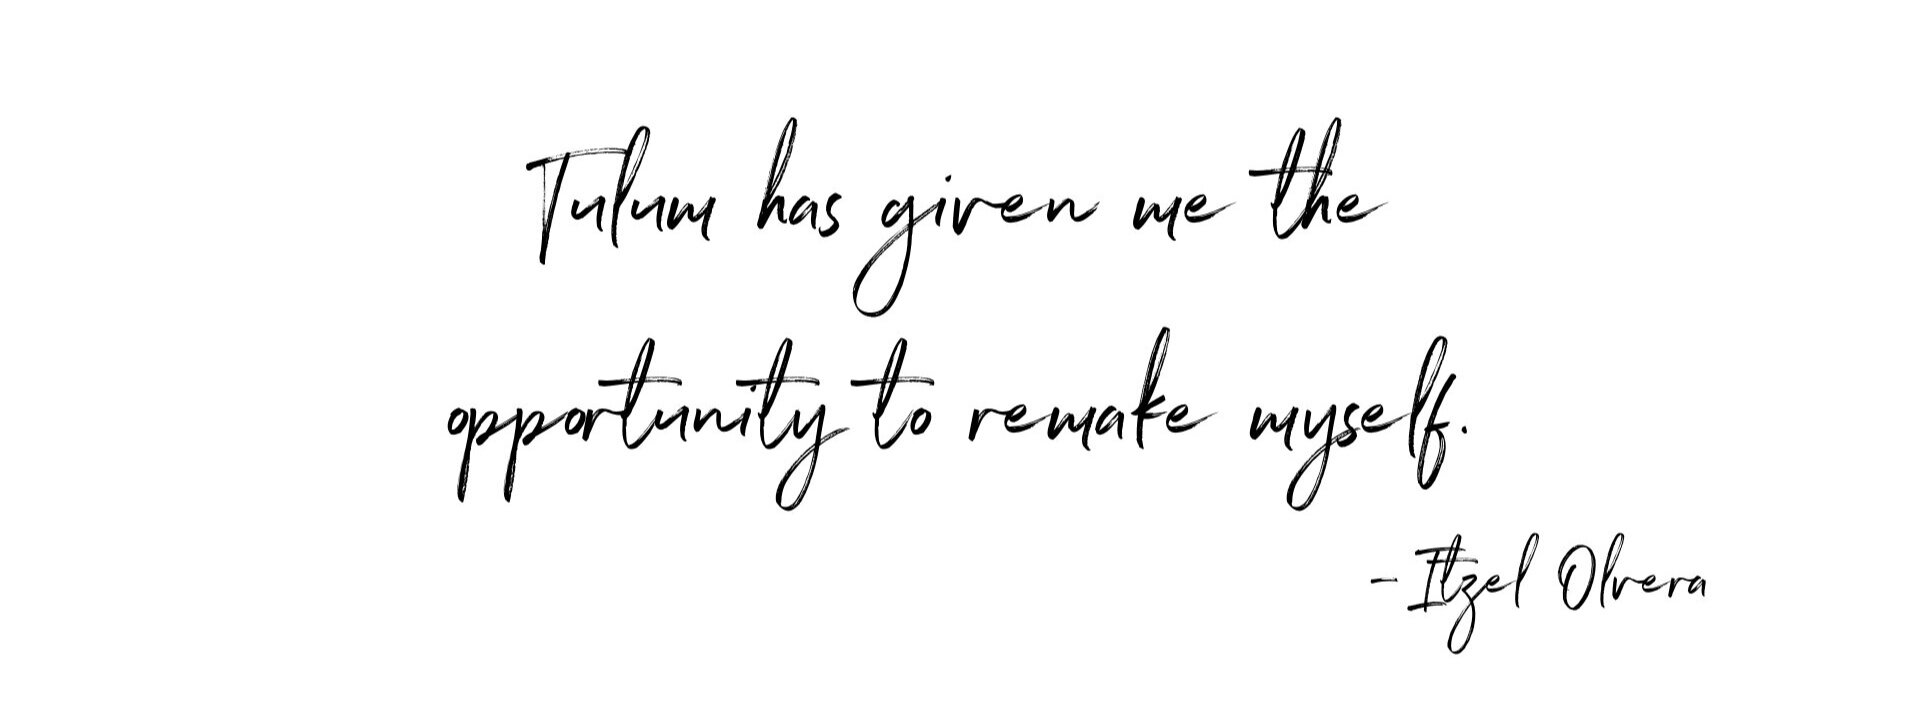 Tulum has given me the
opportunity to remake myself.
- Itzel Olvera